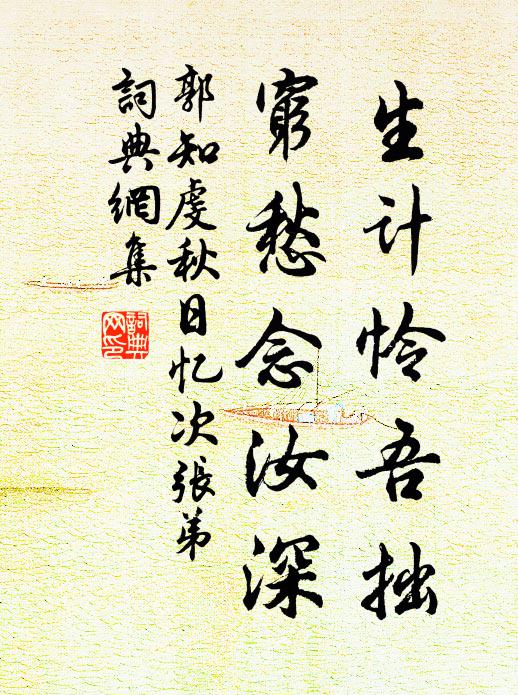 生计怜吾拙
窮愁念汝深
郭知虔秋日忆次張弟
詞典網集
詞典網印